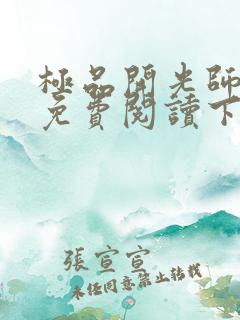 極品開光師
免費閱讀下
張宣宣
未經同意禁止轉載